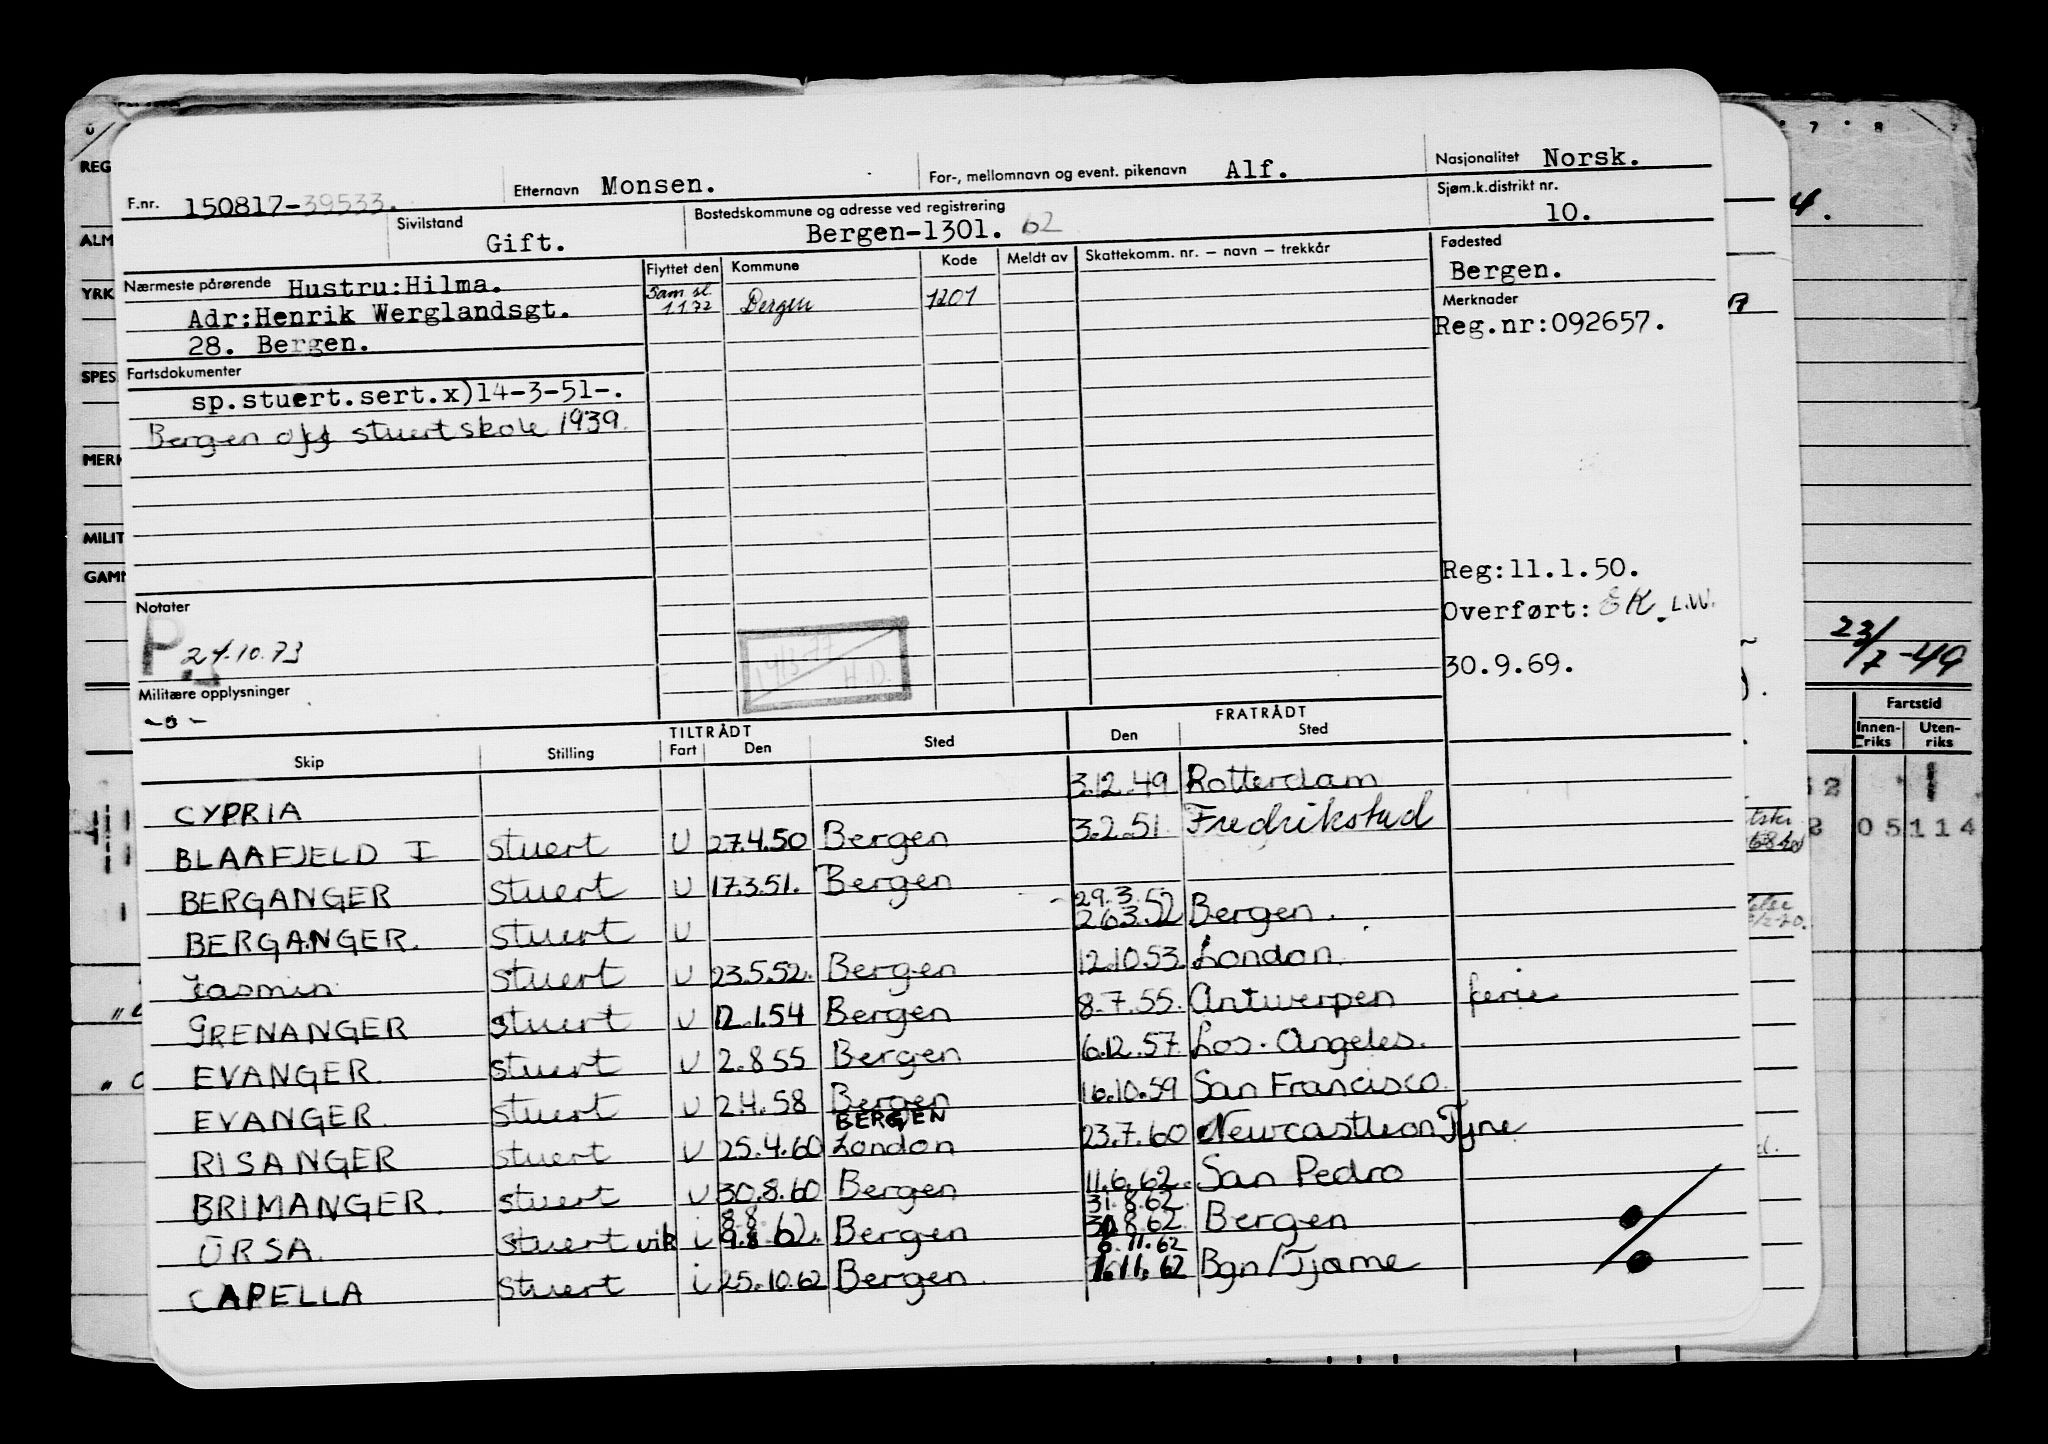 F.nr. 150817-39533. Etternavn Monsen. For-, mellomnavn og event. pikenavn Alf. Nasjonalitet Norsk.
Sivilstand Gift. Bostedskommune og adresse ved registrering Bergen-1301. 62 Sjøm.k.distrikt nr. 10.
Nærmeste pårørende Hustru:Hilma.
Adr:Henrik Werglandsgt.
28. Bergen.
Flyttet den Kommune Kode Meldt av Skattekomm. nr. – navn – trekkår
Sam sl. 1.1.72 Bergen 1201
Fødested
Bergen.
Merknader
Reg.nr:092657.
Fartsdokumenter
sp.stuert.sert.x)14-3-51-.
Bergen off stuertskole 1939.
Reg:11.1.50.
Overført: EK. L.W.
30.9.69.
Notater
P. 24.10.73
14/3-77 H.D.
Militære opplysninger
-0-
TILTRÅDT FRATRÅDT
Skip Stilling Fart Den Sted Den Sted
CYPRIA 3.12.49 Rotterdam
BLAAFJELD I stuert U 27.4.50 Bergen 3.2.51. Fredrikstad
BERGANGER stuert U 17.3.51. Bergen
BERGANGER. stuert U 29.3.52 26.3.52 Bergen.
Jasmin stuert U 23.5.52. Bergen 12.10.53. London.
GRENANGER stuert U 12.1.54 Bergen 8.7.55. Antwerpen ferie
EVANGER. stuert U 2.8.55 Bergen 6.12.57. Los. Angeles.
EVANGER. stuert U 2.4.58 Bergen 16.10.59 San Francisco.
RISANGER stuert U 25.4.60 BERGEN London 23.7.60 Newcastle on Tyne
BRIMANGER. stuert U 30.8.60 Bergen 11.6.62. San Pedro
URSA. stuert vik i 8.8. 9.8.62. Bergen 31.8.62 Bergen
CAPELLA stuert i 25.10.62 Bergen. 6.11.62 Bgn/Tjøme
REG
ALM
YRK
SPES
MERK
MILIT
GAMM
7 8
4.
23/7-49
Fartstid
Innenriks Utenriks
05 114